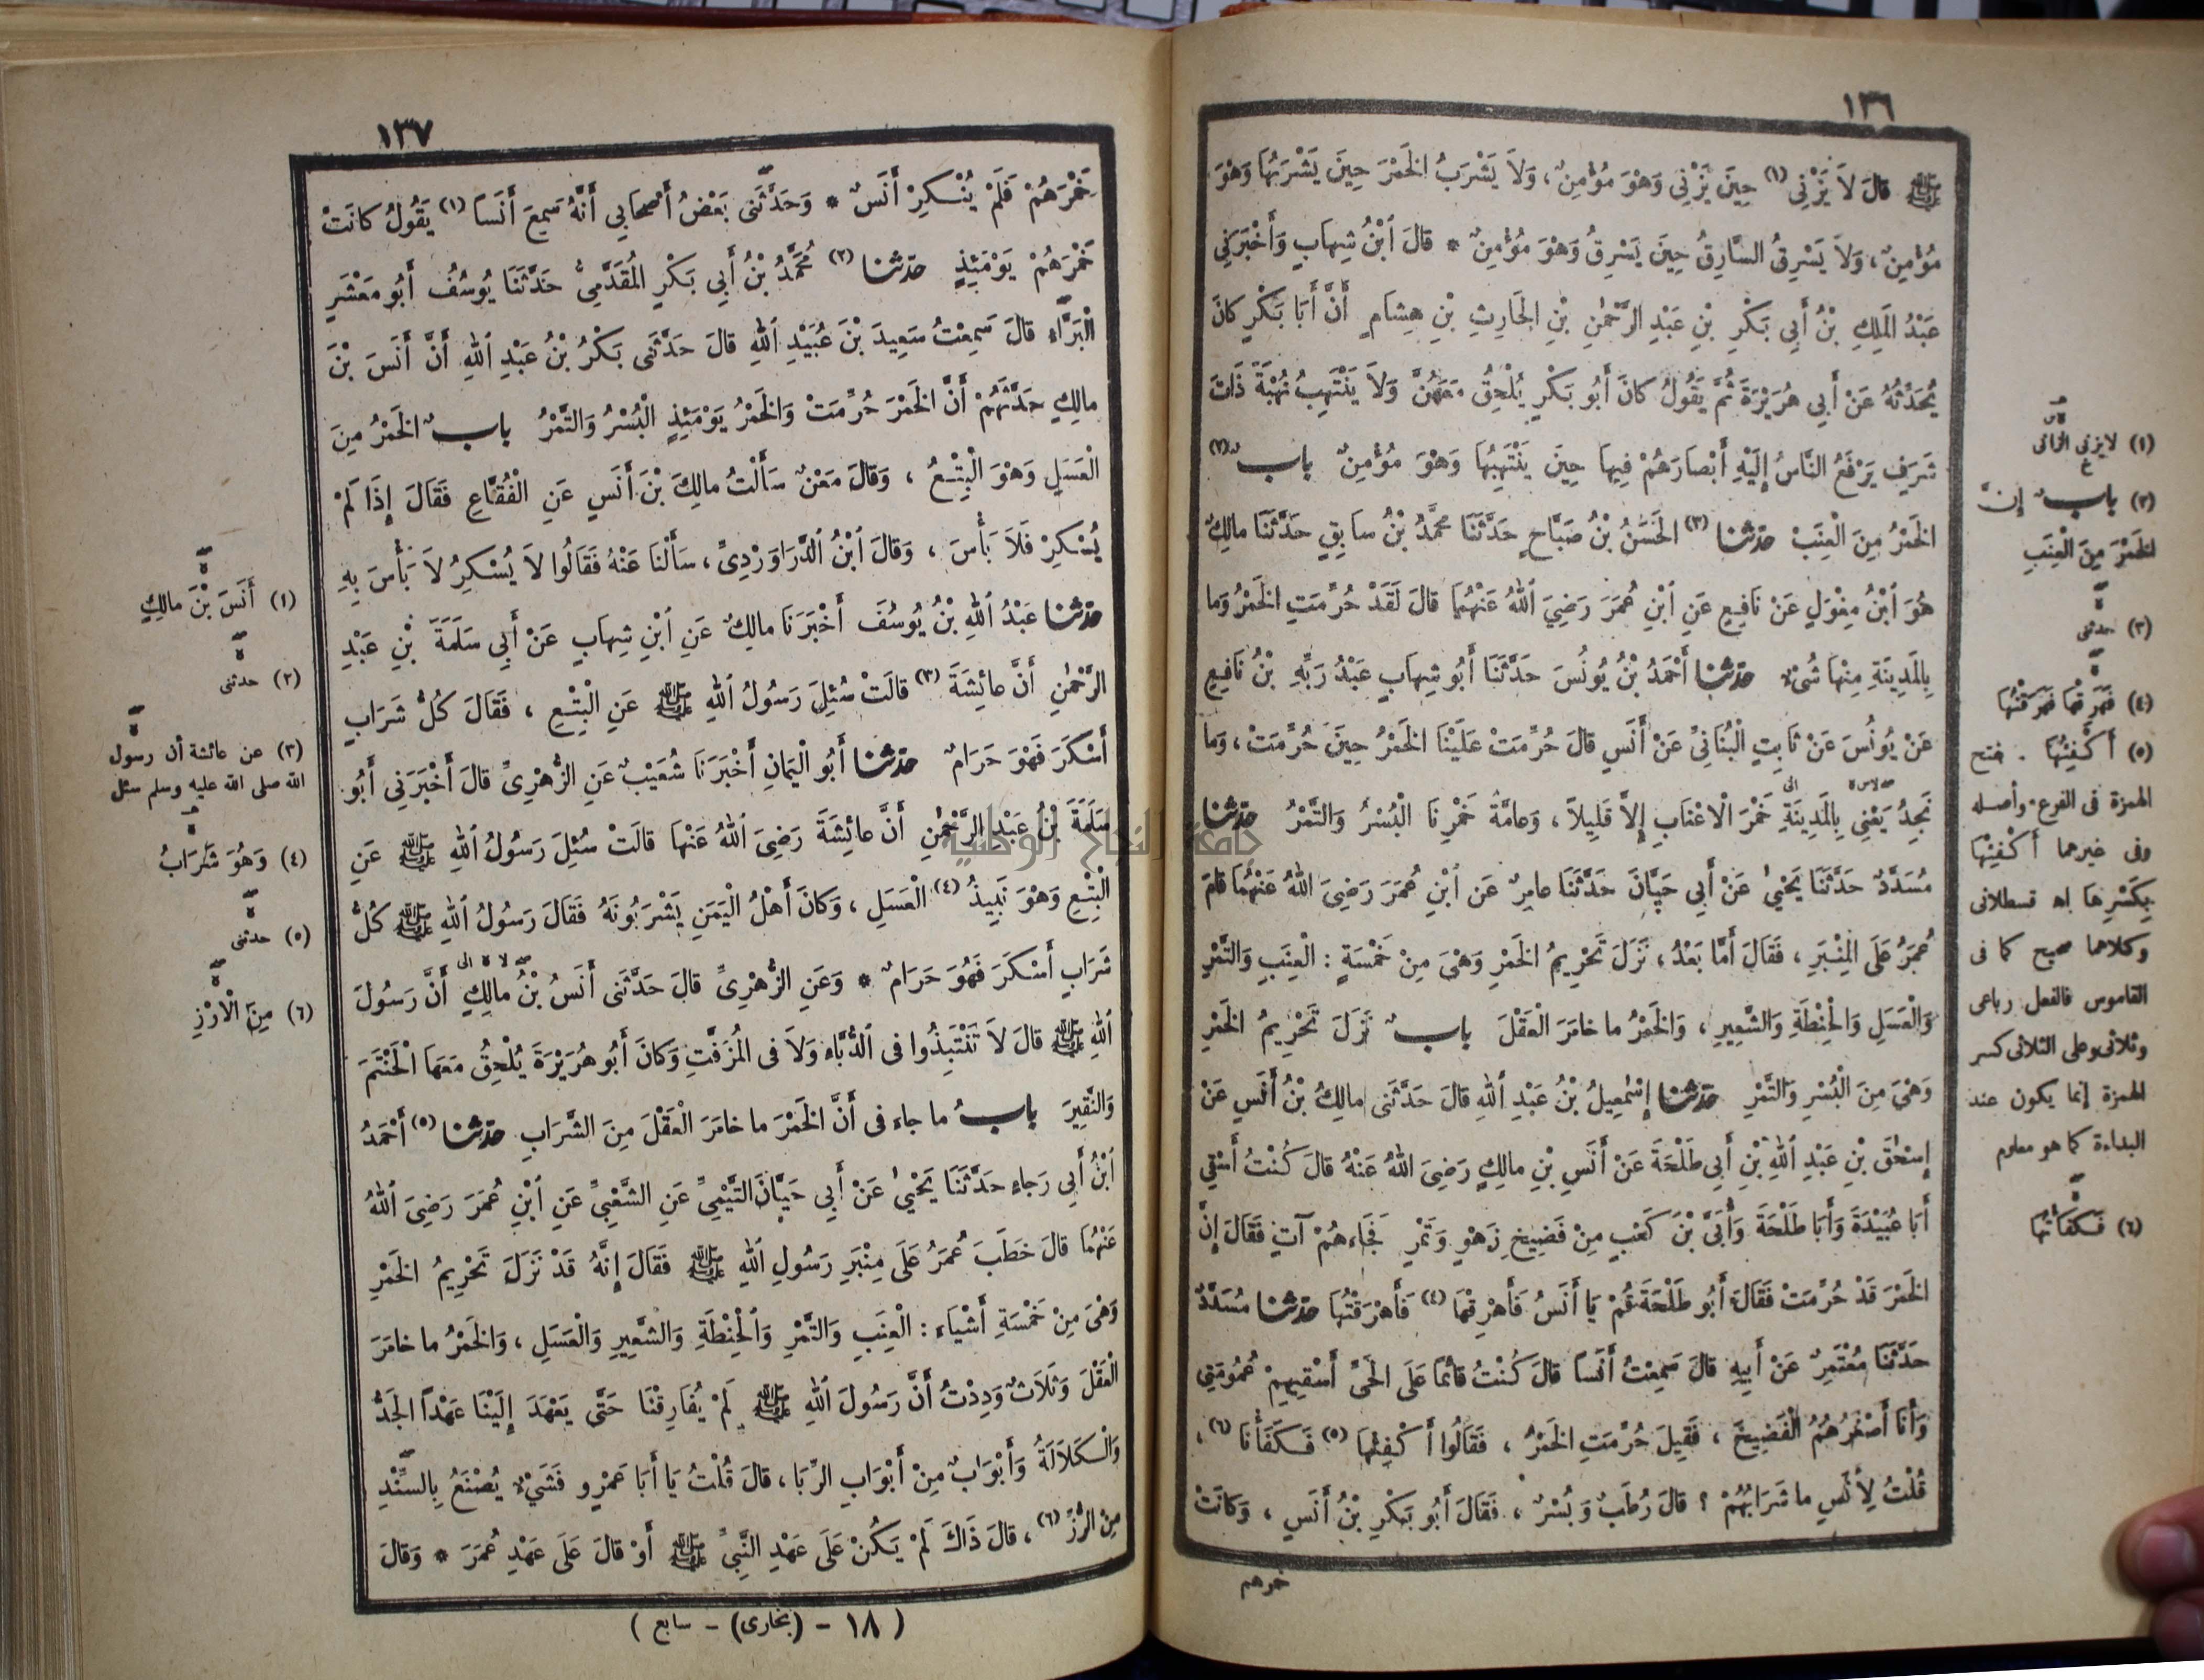 ١٣٦
ﷺ قالَ لاَ يَزْنِي (١) حِينَ يَزْنِي وَهْوَ مُؤْمِنٌ ، وَلاَ يَشْرَبُ الخَمْرَ حِينَ يَشْرَبُهَا وَهْوَ
مُؤْمِنٌ ، وَلاَ يَسْرِقُ السَّارِقُ حِينَ يَسْرِقُ وَهْوَ مُؤْمِنٌ * قالَ ابْنُ شِهَابٍ وَأَخْبَرَنِي
عَبْدُ المَلِكِ بْنُ أَبِي بَكْرِ بْنِ عَبْدِ الرَّحْمٰنِ بْنِ الحَارِثِ بْنِ هِشَامٍ أَنَّ أَبَا بَكْرٍ كانَ
يُحَدِّثُهُ عَنْ أَبِي هُرَيْرَةَ ثُمَّ يَقُولُ كانَ أَبُو بَكْرٍ يُلْحِقُ مَعَهُنَّ وَلاَ يَنْتَهِبُ نُهْبَةً ذَاتَ
شَرَفٍ يَرْفَعُ النَّاسُ إِلَيْهِ أَبْصَارَهُمْ فِيهَا حِينَ يَنْتَهِبُهَا وَهْوَ مُؤْمِنٌ بابٌ (٢)
الخَمْرُ مِنَ الْعِنَبِ حدثنا (٣) الحَسَنُ بْنُ صَبَّاحٍ حَدَّثَنَا مُحَمَّدُ بْنُ سابِقٍ حَدَّثَنَا مالِكٌ
هُوَ ابْنُ مِغْوَلٍ عَنْ نَافِعٍ عَنِ ابْنِ عُمَرَ رَضِيَ اللهُ عَنْهُمَا قالَ لَقَدْ حُرِّمَتِ الخَمْرُ وَما
بِالمَدِينَةِ مِنْهَا شَيْءٌ حدثنا أَحْمَدُ بْنُ يُونُسَ حَدَّثَنَا أَبُو شِهَابٍ عَبْدُ رَبِّهِ بْنُ نَافِعٍ
عَنْ يُونُسَ عَنْ ثَابِتٍ الْبُنَانِيِّ عَنْ أَنَسٍ قالَ حُرِّمَتْ عَلَيْنَا الخَمْرُ حِينَ حُرِّمَتْ ، وَما
نَجِدُ يَعْنِي بِالمَدِينَةِ خَمْرَ الْأَعْنَابِ إِلاَّ قَلِيلاً ، وَعامَّةُ خَمْرِنَا الْبُسْرُ وَالتَّمْرُ حدثنا
مُسَدَّدٌ حَدَّثَنَا يَحْيٰى عَنْ أَبِي حَيَّانَ حَدَّثَنَا عامِرٌ عَنِ ابْنِ عُمَرَ رَضِيَ اللهُ عَنْهُمَا قامَ
عُمَرُ عَلَى الْمِنْبَرِ ، فَقَالَ أَمَّا بَعْدُ ، نَزَلَ تَحْرِيمُ الخَمْرِ وَهْيَ مِنْ خَمْسَةٍ : الْعِنَبِ وَالتَّمْرِ
وَالْعَسَلِ وَالْحِنْطَةِ وَالشَّعِيرِ ، وَالخَمْرُ ما خامَرَ الْعَقْلَ بابٌ نَزَلَ تَحْرِيمُ الخَمْرِ
وَهْيَ مِنَ الْبُسْرِ وَالتَّمْرِ حدثنا إِسْمٰعِيلُ بْنُ عَبْدِ اللهِ قالَ حَدَّثَنِي مالِكُ بْنُ أَنَسٍ عَنْ
إِسْحٰقَ بْنِ عَبْدِ اللهِ بْنِ أَبِي طَلْحَةَ عَنْ أَنَسِ بْنِ مالِكٍ رَضِيَ اللهُ عَنْهُ قالَ كُنْتُ أَسْقِي
أَبَا عُبَيْدَةَ وَأَبَا طَلْحَةَ وَأُبَيَّ بْنَ كَعْبٍ مِنْ فَضِيخِ زَهْوٍ وَتَمْرٍ فَجَاءَهُمْ آتٍ فَقَالَ إِنَّ
الخَمْرَ قَدْ حُرِّمَتْ فَقَالَ أَبُو طَلْحَةَ قُمْ يَا أَنَسُ فَأَهْرِقْهَا (٤) فَأَهْرَقْتُهَا حدثنا مُسَدَّدٌ
حَدَّثَنَا مُعْتَمِرٌ عَنْ أَبِيهِ قالَ سَمِعْتُ أَنَساً قالَ كُنْتُ قائِماً عَلَى الحَيِّ أَسْقِيهِمْ عُمُومَتِي
وَأَنَا أَصْغَرُهُمُ الْفَضِيخَ ، فَقِيلَ حُرِّمَتِ الخَمْرُ ، فَقَالُوا أَكْفِئْهَا (٥) فَكَفَأْنَا (٦) ،
قُلْتُ لِأَنَسٍ ما شَرَابُهُمْ ؟ قالَ رُطَبٌ وَبُسْرٌ ، فَقَالَ أَبُو بَكْرِ بْنُ أَنَسٍ ، وَكانَتْ
خمرهم
(١) لايزني الزاني
(٢) بابٌ إنَّ
الخَمْرَ مِنَ الْعِنَبِ
(٣) حدثنى
(٤) فَهَرِقْهَا فَهَرَقْتُهَا
(٥) أَكْفِئْهَا . فتح
الهمزة فى الفرع وأصله
وفى غيرهما أَكْفِئْهَا
بِكَسْرِها اه قسطلانى
وكلاهما صحيح كما فى
القاموس فالفعل رباعى
وثلاثى وعلى الثلاثى كسر
الهمزة إنما يكون عند
البداءة كما هو معلوم
(٦) فَكَفَأْتُهَا
١٣٧
خَمْرَهُمْ فَلَمْ يُنْكِرْ أَنَسٌ * وَحَدَّثَنِي بَعْضُ أَصْحَابِي أَنَّهُ سَمِعَ أَنَساً (١) يَقُولُ كانَتْ
خَمْرَهُمْ يَوْمَئِذٍ حدثنا (٢) مُحَمَّدُ بْنُ أَبِي بَكْرٍ المُقَدَّمِيُّ حَدَّثَنَا يُوسُفُ أَبُو مَعْشَرٍ
الْبَرَّاءُ قالَ سَمِعْتُ سَعِيدَ بْنَ عُبَيْدِ اللهِ قالَ حَدَّثَنِي بَكْرُ بْنُ عَبْدِ اللهِ أَنَّ أَنَسَ بْنَ
مالِكٍ حَدَّثَهُمْ أَنَّ الخَمْرَ حُرِّمَتْ وَالخَمْرُ يَوْمَئِذٍ الْبُسْرُ وَالتَّمْرُ بابٌ الخَمْرُ مِنَ
الْعَسَلِ وَهْوَ الْبِتْعُ ، وَقالَ مَعْنٌ سَأَلْتُ مالِكَ بْنَ أَنَسٍ عَنِ الْفُقَّاعِ فَقَالَ إِذَا لَمْ
يُسْكِرْ فَلاَ بَأْسَ ، وَقالَ ابْنُ الدَّرَاوَرْدِيِّ ، سَأَلْنَا عَنْهُ فَقَالُوا لاَ يُسْكِرُ لاَ بَأْسَ بِهِ
حدثنا عَبْدُ اللهِ بْنُ يُوسُفَ أَخْبَرَنَا مالِكٌ عَنِ ابْنِ شِهَابٍ عَنْ أَبِي سَلَمَةَ بْنِ عَبْدِ
الرَّحْمٰنِ أَنَّ عائِشَةَ (٣) قالَتْ سُئِلَ رَسُولُ اللهِ ﷺ عَنِ الْبِتْعِ ، فَقَالَ كُلُّ شَرَابٍ
أَسْكَرَ فَهْوَ حَرَامٌ حدثنا أَبُو الْيَمَانِ أَخْبَرَنَا شُعَيْبٌ عَنِ الزُّهْرِيِّ قالَ أَخْبَرَنِي أَبُو
سَلَمَةَ بْنُ عَبْدِ الرَّحْمٰنِ أَنَّ عائِشَةَ رَضِيَ اللهُ عَنْهَا قالَتْ سُئِلَ رَسُولُ اللهِ ﷺ عَنِ
الْبِتْعِ وَهْوَ نَبِيذُ (٤) الْعَسَلِ ، وَكانَ أَهْلُ الْيَمَنِ يَشْرَبُونَهُ فَقَالَ رَسُولُ اللهِ ﷺ كُلُّ
شَرَابٍ أَسْكَرَ فَهُوَ حَرَامٌ * وَعَنِ الزُّهْرِيِّ قالَ حَدَّثَنِي أَنَسُ بْنُ مالِكٍ أَنَّ رَسُولَ
اللهِ ﷺ قالَ لاَ تَنْتَبِذُوا فى الدُّبَّاءِ وَلاَ فى المُزَفَّتِ وَكانَ أَبُو هُرَيْرَةَ يُلْحِقُ مَعَهَا الْحَنْتَمَ
وَالنَّقِيرَ بابُ ما جاء فى أَنَّ الخَمْرَ ما خامَرَ الْعَقْلَ مِنَ الشَّرَابِ حدثنا (٥) أَحْمَدُ
ابْنُ أَبِي رَجاءٍ حَدَّثَنَا يَحْيٰى عَنْ أَبِي حَيَّانَ التَّيْمِيِّ عَنِ الشَّعْبِيِّ عَنِ ابْنِ عُمَرَ رَضِيَ اللهُ
عَنْهُمَا قالَ خَطَبَ عُمَرُ عَلَى مِنْبَرِ رَسُولِ اللهِ ﷺ فَقَالَ إِنَّهُ قَدْ نَزَلَ تَحْرِيمُ الخَمْرِ
وَهْيَ مِنْ خَمْسَةِ أَشْيَاءَ : الْعِنَبِ وَالتَّمْرِ وَالْحِنْطَةِ وَالشَّعِيرِ وَالْعَسَلِ ، وَالخَمْرُ ما خامَرَ
الْعَقْلَ وَثَلاَثٌ وَدِدْتُ أَنَّ رَسُولَ اللهِ ﷺ لَمْ يُفَارِقْنَا حَتَّى يَعْهَدَ إِلَيْنَا عَهْداً الجَدُّ
وَالْكَلاَلَةُ وَأَبْوَابٌ مِنْ أَبْوَابِ الرِّبَا ، قالَ قُلْتُ يَا أَبَا عَمْرٍو فَشَيْءٌ يُصْنَعُ بِالسِّنْدِ
مِنَ الرُّزِّ (٦) ، قالَ ذَاكَ لَمْ يَكُنْ عَلَى عَهْدِ النَّبِيِّ ﷺ أَوْ قالَ عَلَى عَهْدِ عُمَرَ * وَقالَ
(١) أَنَسَ بْنَ مالِكٍ
(٢) حدثنى
(٣) عن عائشة أن رسول
الله صلى الله عليه وسلم سئل
(٤) وَهُوَ شَرَابُ
(٥) حدثنى
(٦) مِنَ الْأَرْزِ
( ١٨ - (بخارى) - سابع )
جامعة النجاح الوطنية